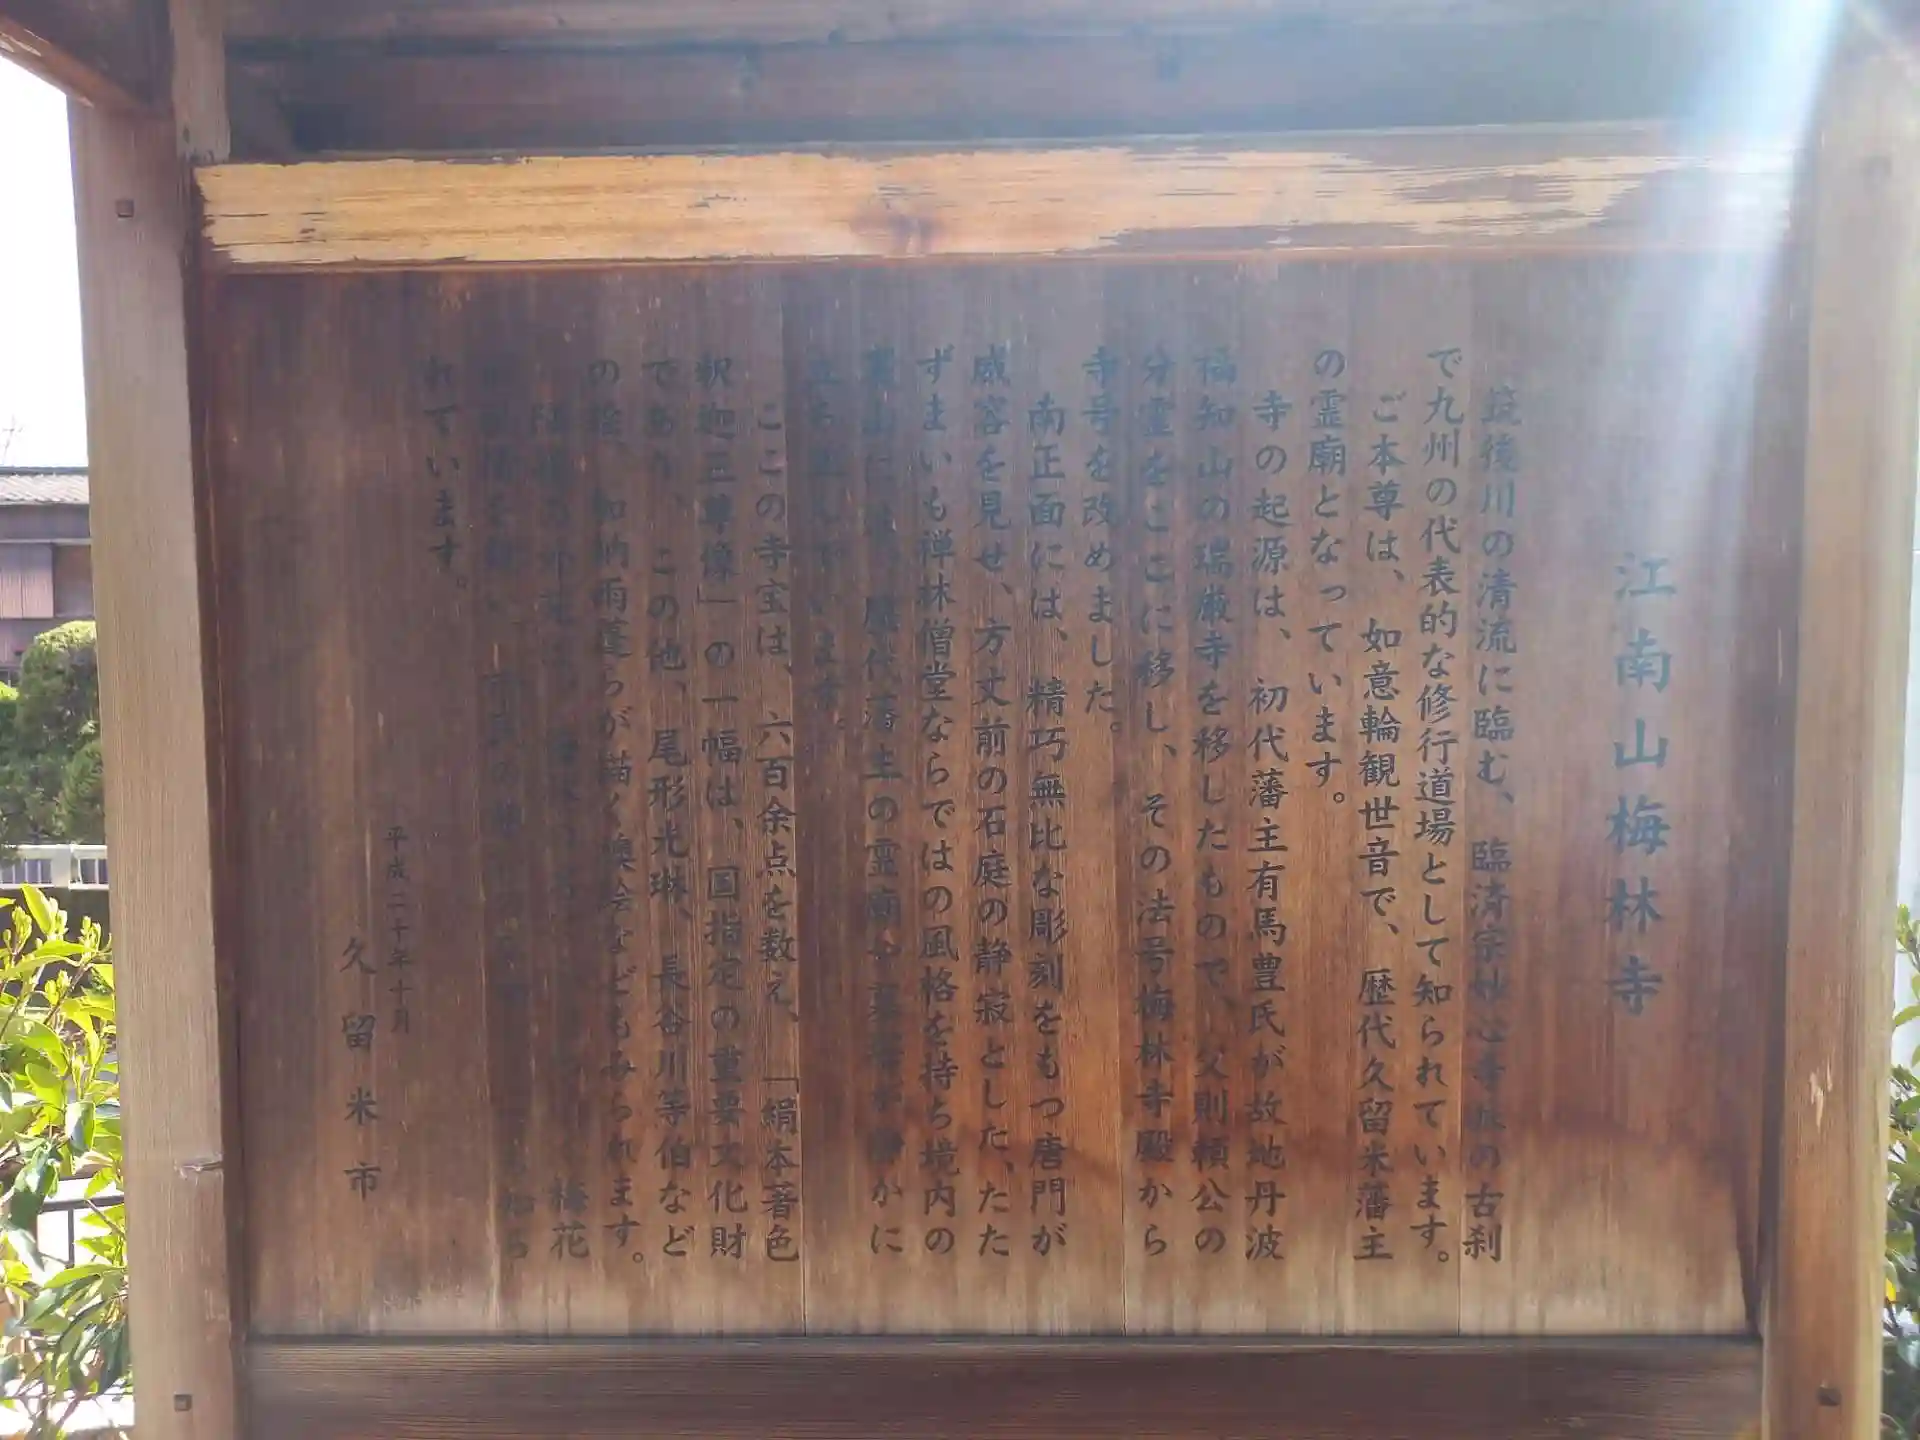 江南山梅林寺
筑後川の清流に臨む、臨済宗妙心寺派の古刹
で九州の代表的な修行道場として知られています。
ご本尊は、如意輪観世音で、歴代久留米藩主
の霊廟となっています。
寺の起源は、初代藩主有馬豊氏が故地丹波
福知山の瑞巌寺を移したもので、父則頼公の
分霊をここに移し、その法号梅林寺殿から
寺号を改めました。
南正面には、精巧無比な彫刻をもつ唐門が
威容を見せ、方丈前の石庭の静寂とした、たた
ずまいも禅林僧堂ならではの風格を持ち境内の
裏山には、歴代藩主の霊廟や墓碑が静かに
立ち並んでいます。
ここの寺宝は、六百余点を数え、「絹本著色
釈迦三尊像」の一幅は、国指定の重要文化財
であり、この他、尾形光琳、長谷川等伯など
の絵、加納雨蓬らが描く襖絵などもみられます。
梅花
れています。
平成二十年十月
久留米市